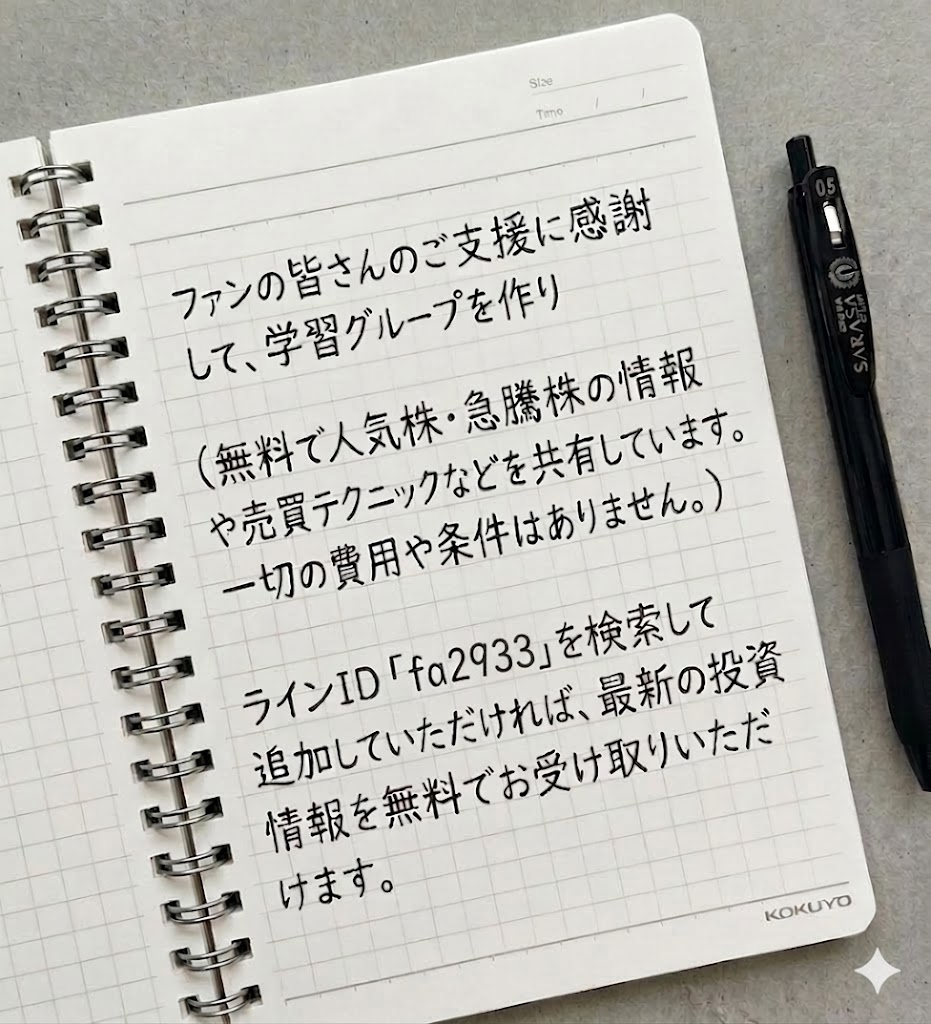 Size
Time / /
ファンの皆さんのご支援に感謝
して、学習グループを作り
(無料で人気株・急騰株の情報
や売買テクニックなどを共有しています。
一切の費用や条件はありません。)
ラインID「fa2933」を検索して
追加していただければ、最新の投資
情報を無料でお受け取りいただ
けます。
KOKUYO
05
SARASA